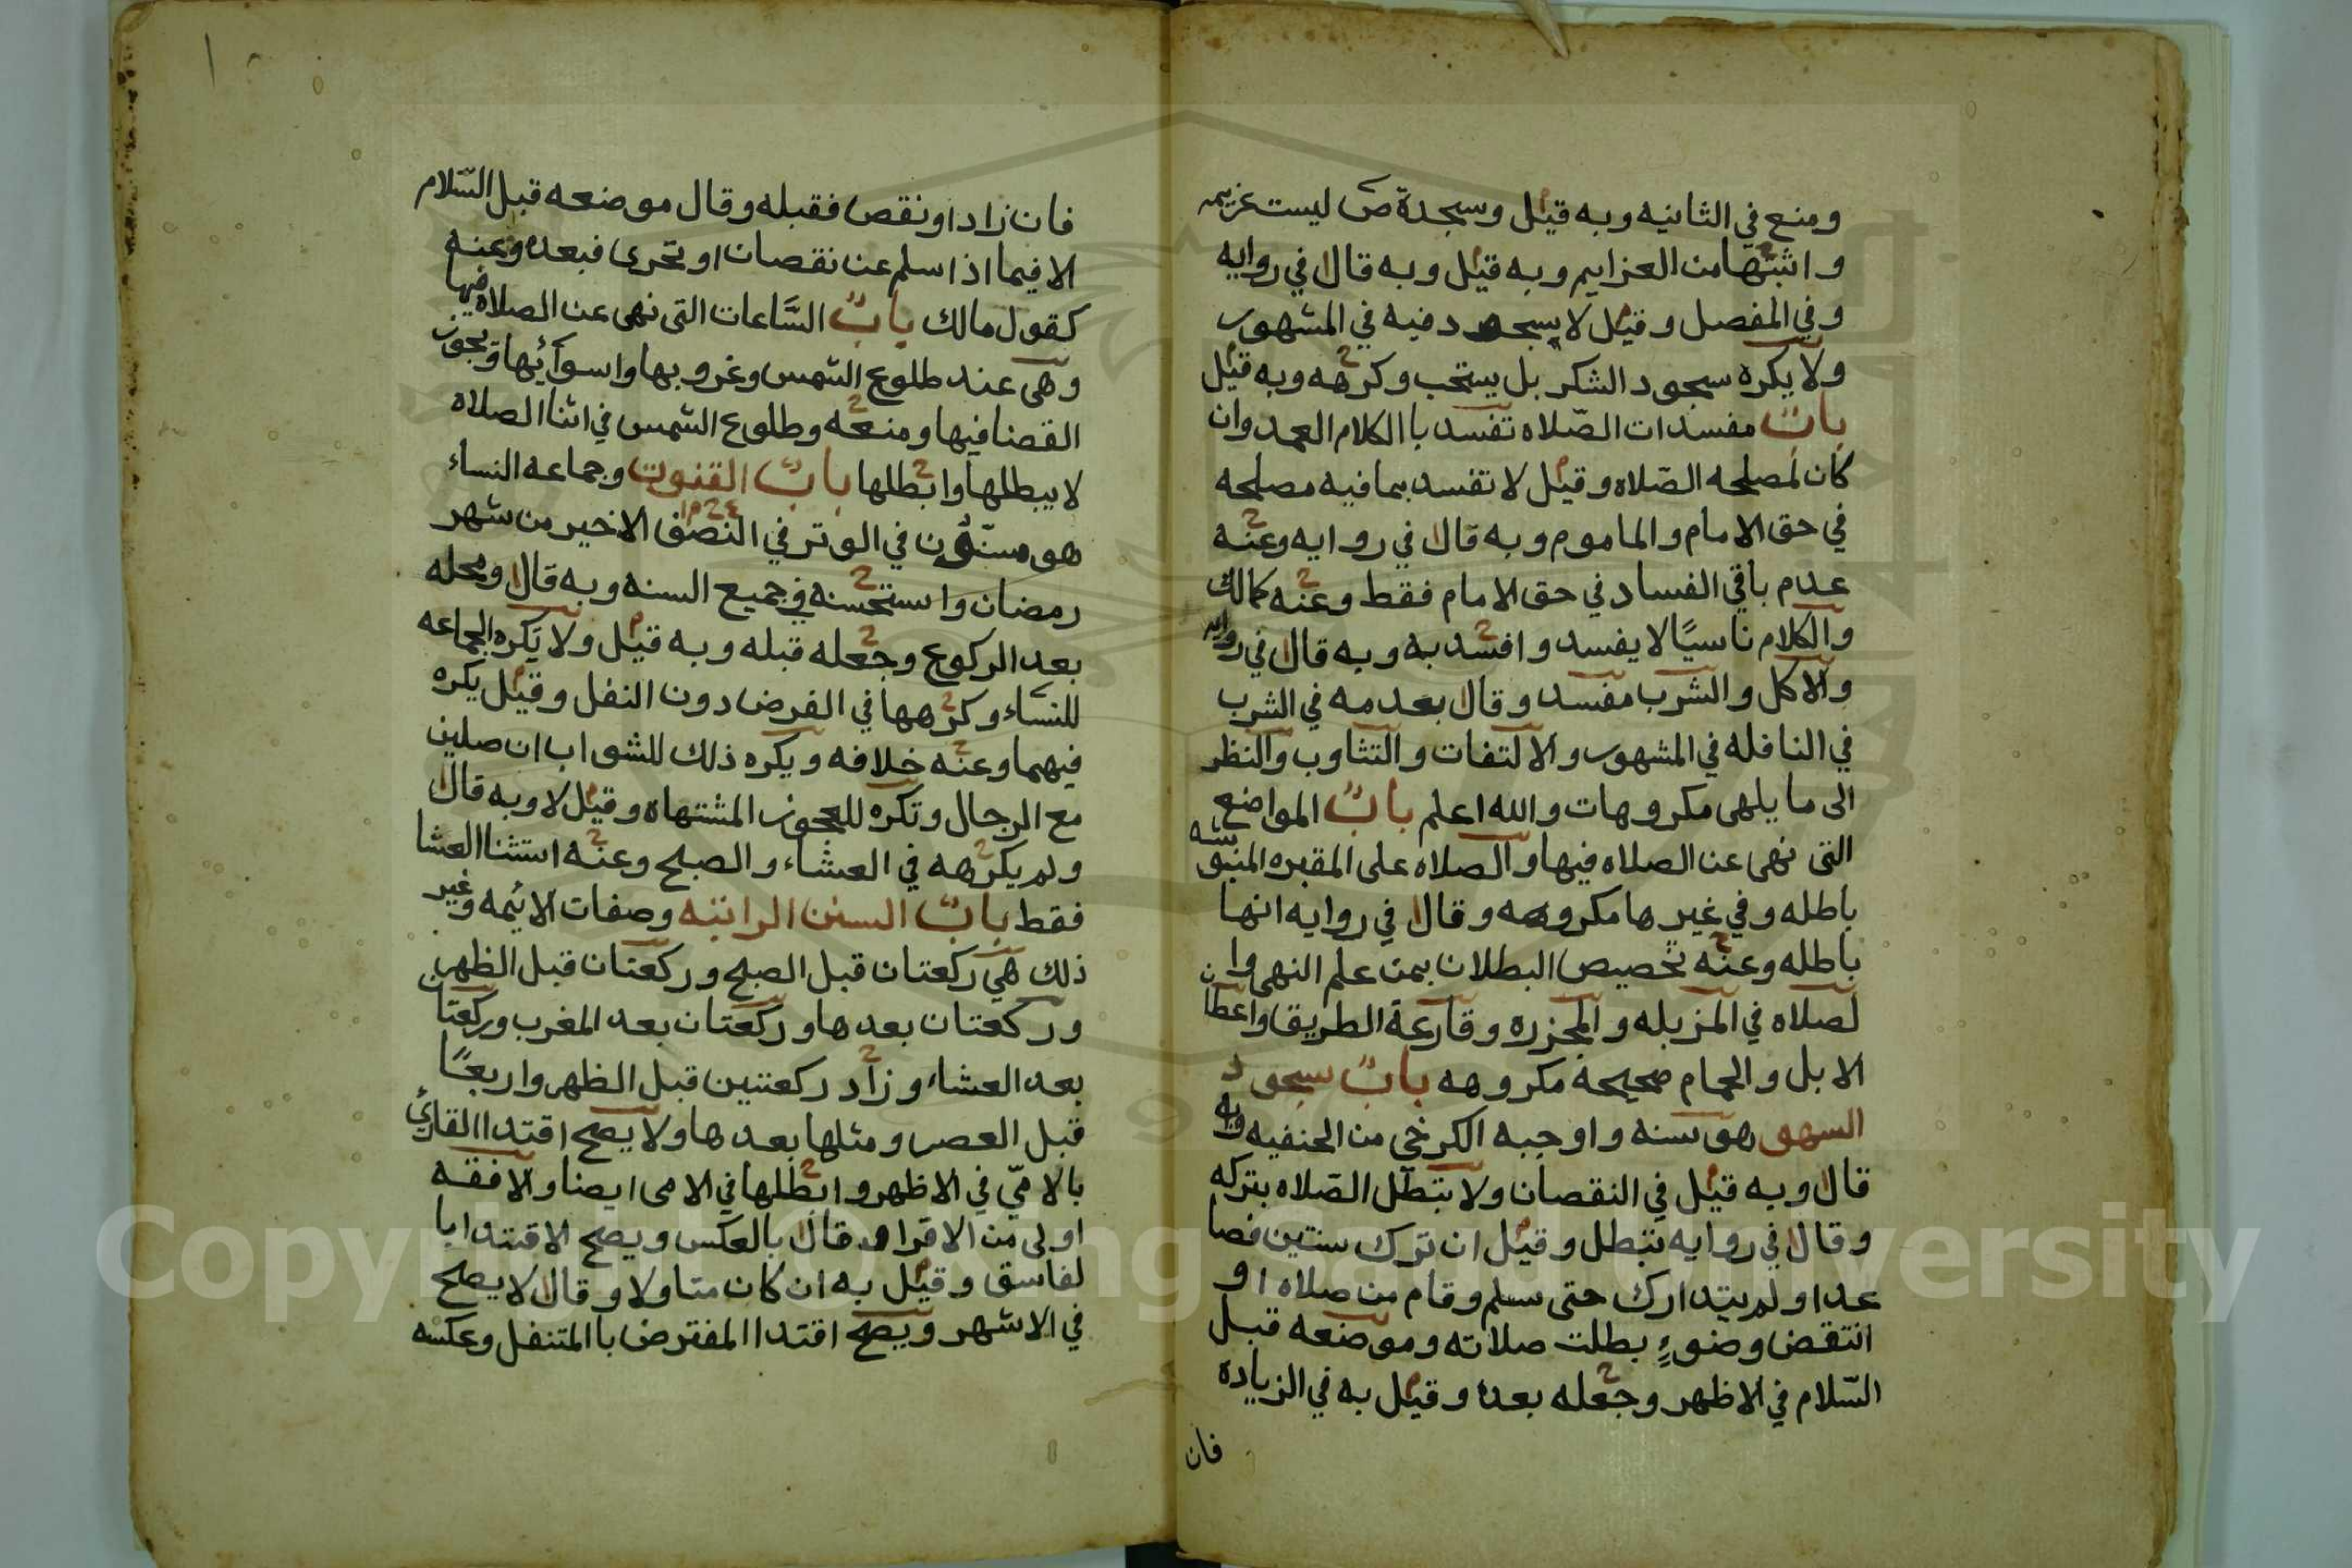 ومنع في الثانيه وبه قيل وسجدة ص ليست عزيمه
واثبتها من العزايم وبه قيل وبه قال في روايه
وفي المفصل وقيل لا يسجد فيه في المشهور
ولا يكره سجود الشكر بل يستحب وكرهه وبه قيل
باب مفسدات الصلاه تفسد با الكلام العمد وان
كان لمصلحه الصلاه وقيل لا تفسد بما فيه مصلحه
في حق الامام والماموم وبه قال في روايه وعنه
عدم باقي الفساد في حق الامام فقط وعنه كمالك
والكلام ناسيًا لا يفسد وافسد به وبه قال في روايه
والاكل والشرب مفسد وقال بعدمه في الشرب
في النافله في المشهور والالتفات والتثاوب والنظر
الى ما يلهى مكروهات والله اعلم باب المواضع
التى نهى عن الصلاه فيها والصلاه على المقبره المنبوشه
باطله وفي غيرها مكروهه وقال في روايه انها
باطله وعنه تخصيص البطلان بمن علم النهى وان
لصلاه في المزبله والمجزره وقارعة الطريق واعطان
الابل والحمام صحيحه مكروهه باب سجود
السهو هو سنه واوجبه الكرخي من الحنفيه وبه
قال وبه قيل في النقصان ولا تبطل الصلاه بتركه
وقال في روايه تبطل وقيل ان ترك سنتين فصا
عدا ولم يتدارك حتى سلم وقام من صلاه او
انتقض وضوء بطلت صلاته وموضعه قبل
السلام في الاظهر وجعله بعده وقيل به في الزياده
فان
فان زاد او نقص فقبله وقال موضعه قبل السلام
الا فيما اذا سلم عن نقصان او تحرى فبعده وعنه
كقول مالك باب الساعات التى نهى عن الصلاه فيها
وهى عند طلوع الشمس وغروبها واسوائها ويجوز
القضا فيها ومنعه وطلوع الشمس في اثنا الصلاه
لا يبطلها وابطلها باب القنوت وجماعه النساء
هو مسنون في الوتر في النصف الاخير من شهر
رمضان واستحسنه في جميع السنه وبه قال ومحله
بعد الركوع وجعله قبله وبه قيل ولا تكره الجماعه
للنساء وكرهها في الفرض دون النفل وقيل يكره
فيهما وعنه خلافه ويكره ذلك للشواب ان صلين
مع الرجال وتكره للعجوز المشتهاه وقيل لا وبه قال
ولم يكرهه في العشاء والصبح وعنه استثنا العشا
فقط باب السنن الراتبه وصفات الائمه وغير
ذلك هي ركعتان قبل الصبح وركعتان قبل الظهر
وركعتان بعدها وركعتان بعد المغرب وركعتان
بعد العشاء وزاد ركعتين قبل الظهر واربعًا
قبل العصر ومثلها بعدها ولا يصح اقتدا القارئ
بالامي في الاظهر وابطلها في الامى ايضا والافقه
اولى من الاقرا وقال بالعكس ويصح الاقتدا با
لفاسق وقيل به ان كان متاولا وقال لا يصح
في الاشهر ويصح اقتدا المفترض با المتنفل وعكسه
Copyright © King Saud University